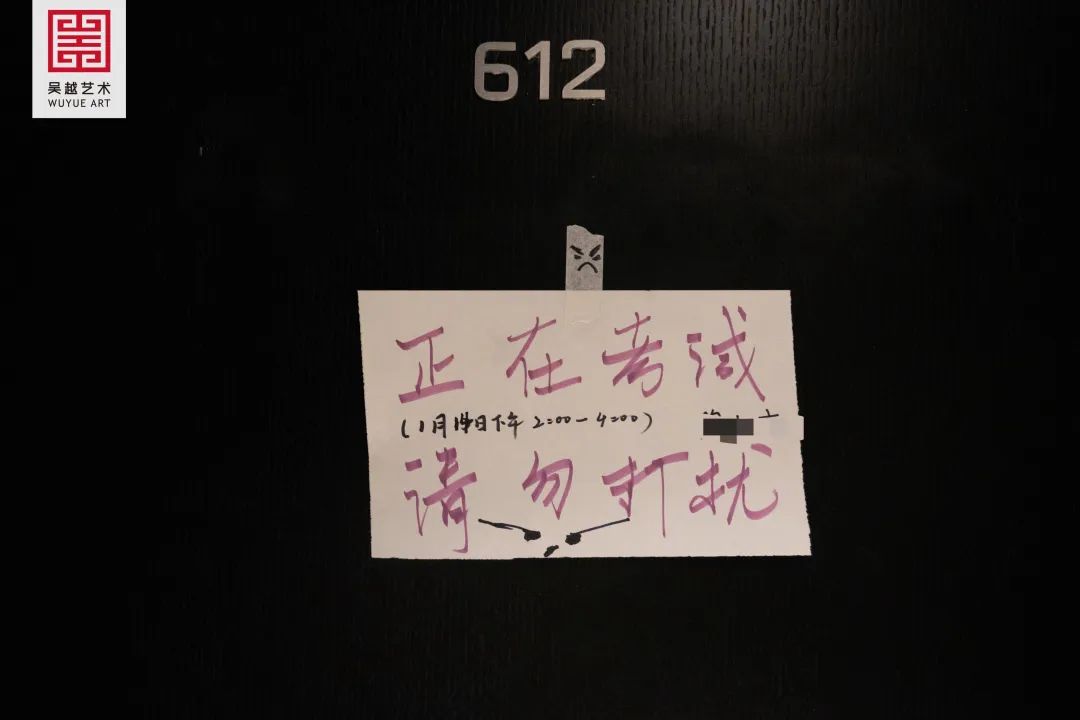 吴越艺术
WUYUE ART
612
正在考试
(1月14日下午 2:00-4:00)
请勿打扰